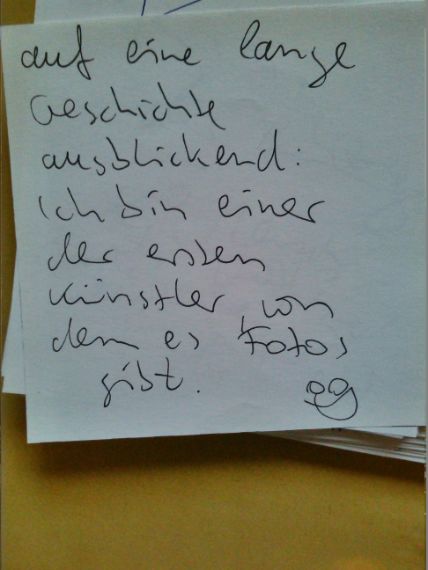 auf eine lange
Geschichte
ausblickend:
ich bin einer
der ersten
Künstler, von
dem es Fotos
gibt.